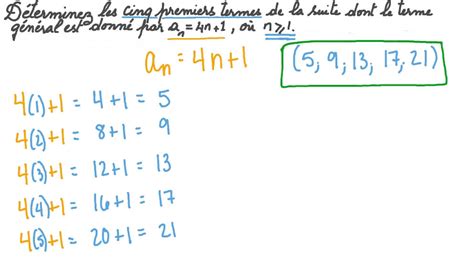 Déterminez les cinq premiers termes de la suite dont le terme
général est donné par aₙ = 4n+1, où n ⩾ 1.
aₙ = 4n+1
(5, 9, 13, 17, 21)
4(1)+1 = 4+1 = 5
4(2)+1 = 8+1 = 9
4(3)+1 = 12+1 = 13
4(4)+1 = 16+1 = 17
4(5)+1 = 20+1 = 21